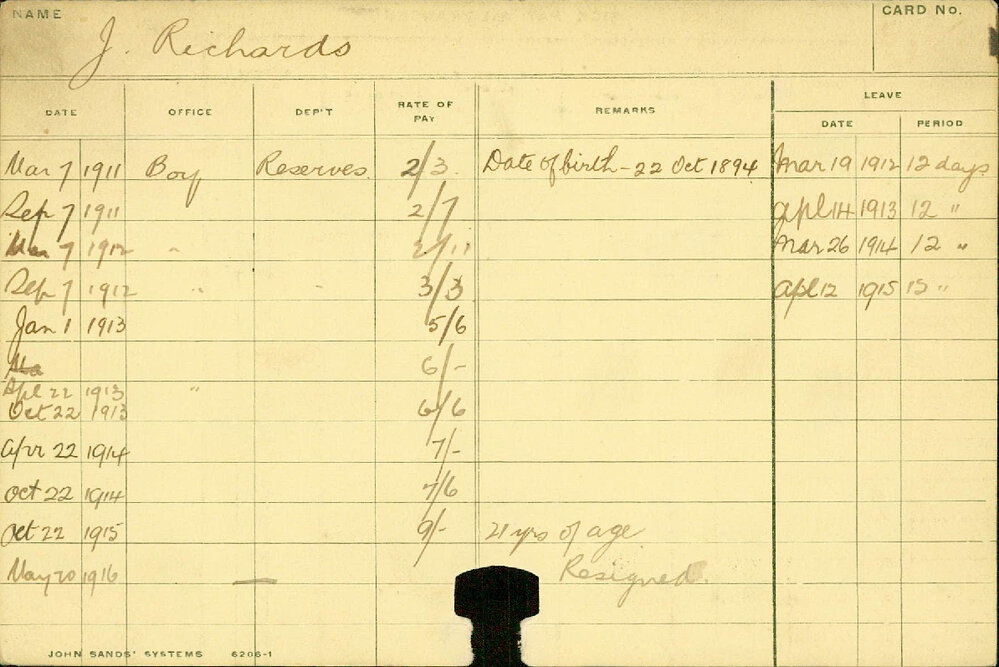 NAME
J. Richards
CARD No.
DATE OFFICE DEP'T RATE OF PAY REMARKS LEAVE
DATE PERIOD
Mar 7 1911 Boy Reserves. 2/3. Date of birth - 22 Oct 1894 Mar 19 1912 12 days
Sep 7 1911 2/7 Apl 14 1913 12 "
Mar 7 1912 " 2/11 Mar 26 1914 12 "
Sep 7 1912 " " 3/3 Apl 12 1915 15 "
Jan 1 1913 5/6
Ma 6/-
Apl 22 1913 "
Oct 22 1913 6/6
Apr 22 1914 7/-
Oct 22 1914 7/6
Oct 22 1915 9/- 21 yrs of age
May 20 1916 — Resigned.
JOHN SANDS' SYSTEMS 6206-1